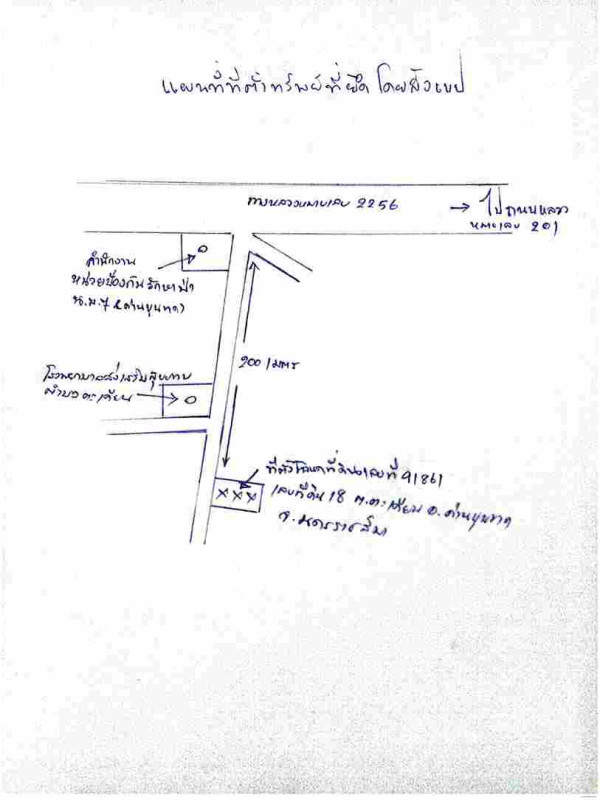 แผนที่ที่ตั้งทรัพย์ที่ยึด โดยสังเขป
ทางหลวงหมายเลข 2256
→ ไปถนนหลวง
หมายเลข 201
สำนักงาน
หน่วยป้องกันรักษาป่า
น.ม.7 (ด่านขุนทด)
200 เมตร
โรงพยาบาลส่งเสริมสุขภาพ
ตำบลตะเคียน
ที่ตั้งโฉนดที่ดินเลขที่ 91861
เลขที่ดิน 18 ต.ตะเคียน อ.ด่านขุนทด
จ.นครราชสีมา
XXX